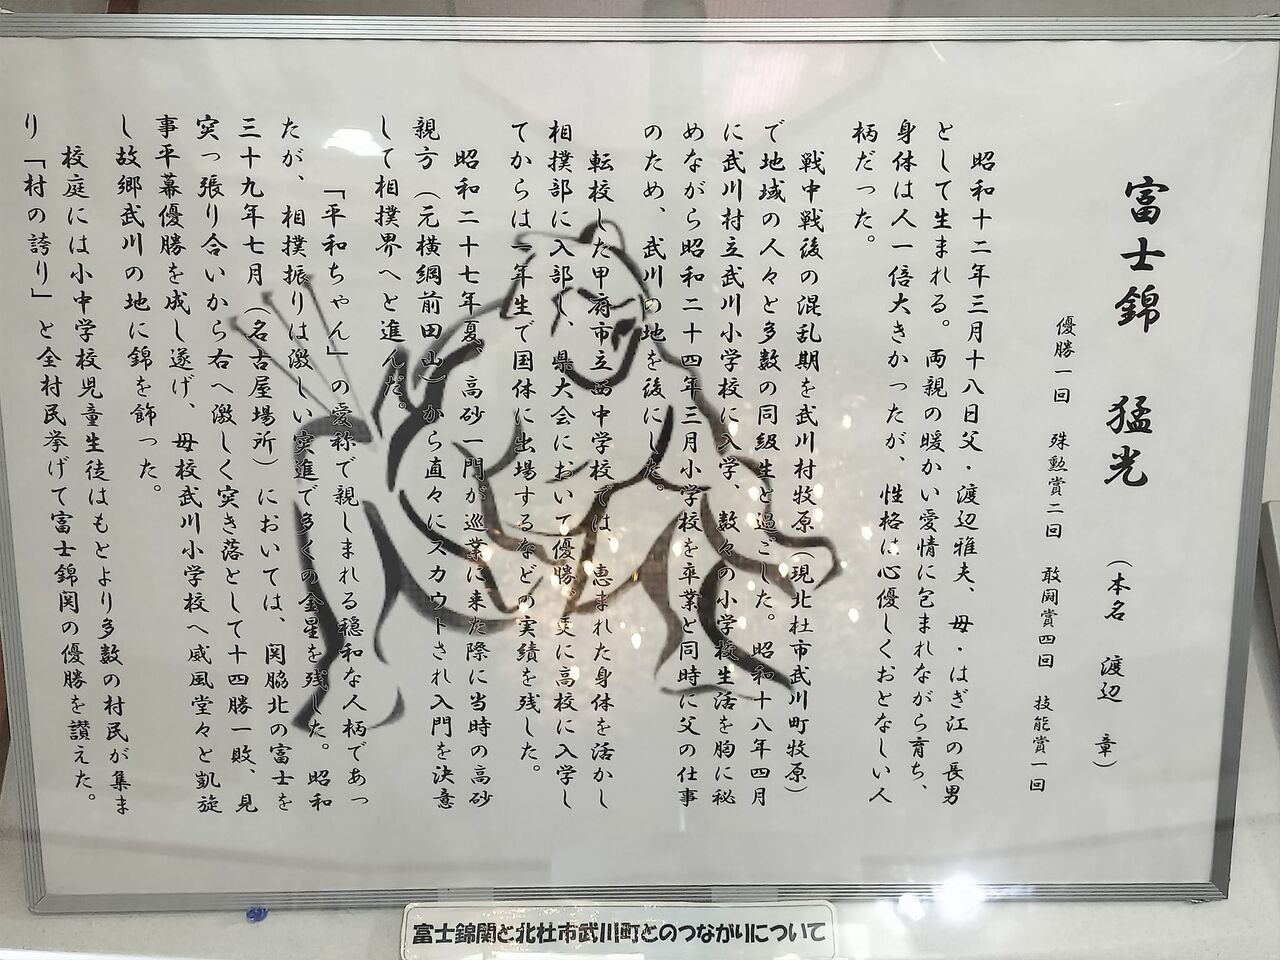 富士錦 猛光 (本名 渡辺 章)
優勝一回 殊勲賞二回 敢闘賞四回 技能賞一回
昭和十二年三月十八日父・渡辺雅夫、母・はぎ江の長男
として生まれる。両親の暖かい愛情に包まれながら育ち、
身体は人一倍大きかったが、性格は心優しくおとなしい人
柄だった。
戦中戦後の混乱期を武川村牧原(現北杜市武川町牧原)
で地域の人々と多数の同級生と過ごした。昭和十八年四月
に武川村立武川小学校に入学、数々の小学校生活を胸に秘
めながら昭和二十四年三月小学校を卒業と同時に父の仕事
のため、武川の地を後にした。
転校した甲府市立西中学校では、恵まれた身体を活かし
相撲部に入部し、県大会において優勝。更に高校に入学し
てからは一年生で国体に出場するなどの実績を残した。
昭和二十七年夏、高砂一門が巡業に来た際に当時の高砂
親方(元横綱前田山)から直々にスカウトされ入門を決意
して相撲界へと進んだ。
「平和ちゃん」の愛称で親しまれる穏和な人柄であっ
たが、相撲振りは激しい突進で多くの金星を残した。昭和
三十九年七月(名古屋場所)においては、関脇北の富士を
突っ張り合いから右へ激しく突き落として十四勝一敗、見
事平幕優勝を成し遂げ、母校武川小学校へ威風堂々と凱旋
し故郷武川の地に錦を飾った。
校庭には小中学校児童生徒はもとより多数の村民が集ま
り「村の誇り」と全村民挙げて富士錦関の優勝を讃えた。
富士錦関と北杜市武川町とのつながりについて